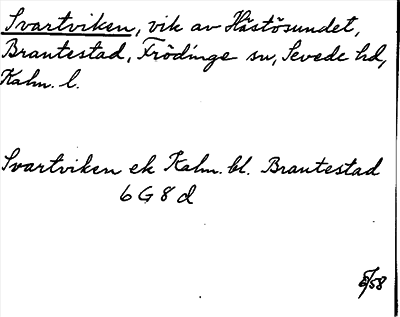 Svartviken, vik av Hästösundet,
Brantestad, Frödinge sn, Sevede hd,
Kalm. l.
Svartviken ek Kalm. bl. Brantestad
6 G 8 d